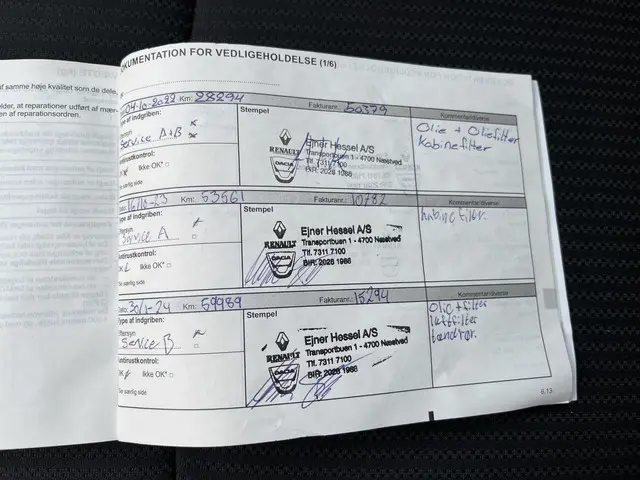 af samme høje kvalitet som de dele,
elder, at reparationer udført af mær-
en af reparationsordren.
OKUMENTATION FOR VEDLIGEHOLDELSE (1/6)
04-10-2022 Km: 28294 Fakturanr.: 50379 Kommentar/diverse
Type af indgriben: Stempel
Eftersyn
Service A+B
Antirustkontrol:
Ikke OK*
Se særlig side
RENAULT
DACIA
Ejner Hessel A/S
Transportbuen 1 - 4700 Næstved
Tlf. 7311 7100
BIR: 2028 1988
Olie + Oliefilter
Kabinefilter
Km: 53561 Fakturanr.: 10782 Kommentar/diverse
Type af indgriben: Stempel
Eftersyn
Service A
Antirustkontrol:
OK Ikke OK*
Se særlig side
RENAULT
DACIA
Ejner Hessel A/S
Transportbuen 1 - 4700 Næstved
Tlf. 7311 7100
BIR: 2028 1988
kabine filter.
Dato: 30/1-24 Km: 59989 Fakturanr.: 15294 Kommentar/diverse
Type af indgriben: Stempel
Eftersyn
Service B
Antirustkontrol:
OK Ikke OK*
Se særlig side
RENAULT
DACIA
Ejner Hessel A/S
Transportbuen 1 - 4700 Næstved
Tlf. 7311 7100
BIR: 2028 1988
Olie + filter
luftfilter
tændrør.
6.13